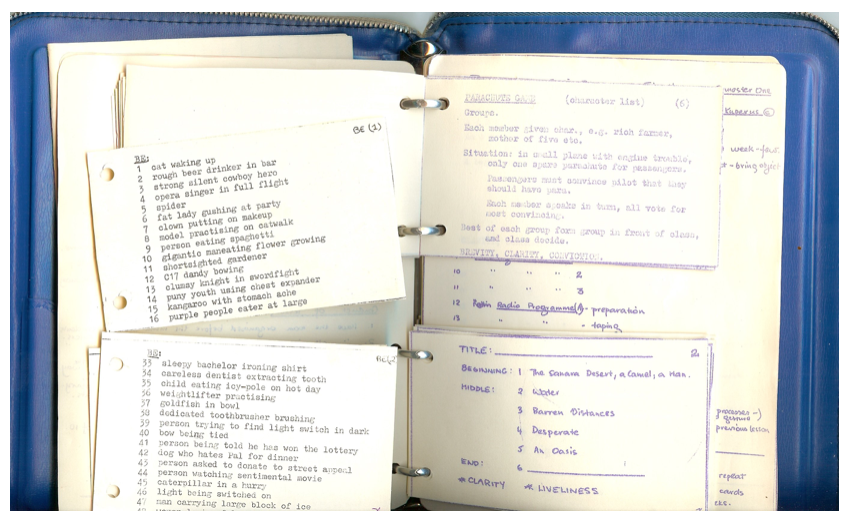 BE (1)
BE:
1 cat waking up
2 rough beer drinker in bar
3 strong silent cowboy hero
4 opera singer in full flight
5 spider
6 fat lady gushing at party
7 clown putting on makeup
8 model practising on catwalk
9 person eating spaghetti
10 gigantic maneating flower growing
11 shortsighted gardener
12 C17 dandy bowing
13 clumsy knight in swordfight
14 puny youth using chest expander
15 kangaroo with stomach ache
16 purple people eater at large
BE:
33 sleepy bachelor ironing shirt
34 careless dentist extracting tooth
35 child eating icy-pole on hot day
36 weightlifter practising
37 goldfish in bowl
38 dedicated toothbrusher brushing
39 person trying to find light switch in dark
40 bow being tied
41 person being told he has won the lottery
42 dog who hates Pal for dinner
43 person asked to donate to street appeal
44 person watching sentimental movie
45 caterpillar in a hurry
46 light being switched on
47 man carrying large block of ice
PARACHUTE GAME (character list) (6)
Groups.
Each member given char., e.g. rich farmer,
mother of five etc.
Situation: in small plane with engine trouble,
only one spare parachute for passengers.
Passengers must convince pilot that they
should have para.
Each member speaks in turn, all vote for
most convincing.
Best of each group form group in front of class,
and class decide.
BREVITY, CLARITY, CONVICTION.
10 " " " 2
11 " " " 3
12 Radio Programme(A) - preparation
13 " " - taping
TITLE: 2
BEGINNING: 1 The Sahara Desert, a Camel, a Man.
MIDDLE: 2 Water
3 Barren Distances
4 Desperate
5 An Oasis
END: 6
* CLARITY * LIVELINESS
One
week -
- bring object
processes -)
previous lesson
repeat
cards